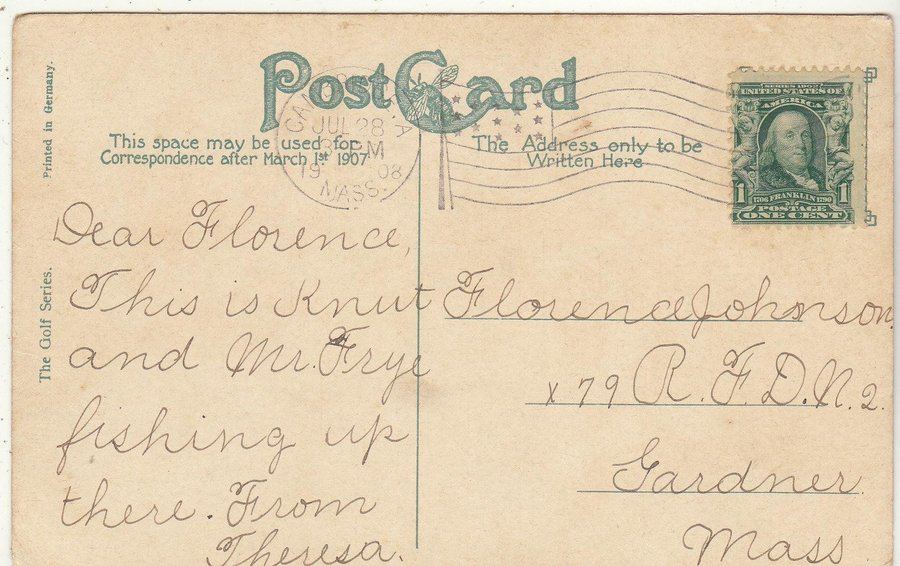 Printed in Germany.
The Golf Series.
Post Card
This space may be used for
Correspondence after March 1st 1907
The Address only to be
Written Here
JUL 28
PM
19 08
MASS.
SERIES 1902
UNITED STATES OF
AMERICA
1 1
1706 FRANKLIN 1790
POSTAGE
ONE CENT
Dear Florence,
This is Knut
and Mr. Frye
fishing up
there. From
Theresa.
Florence Johnson.
x 79 R.F.D.N.2.
Gardner
Mass